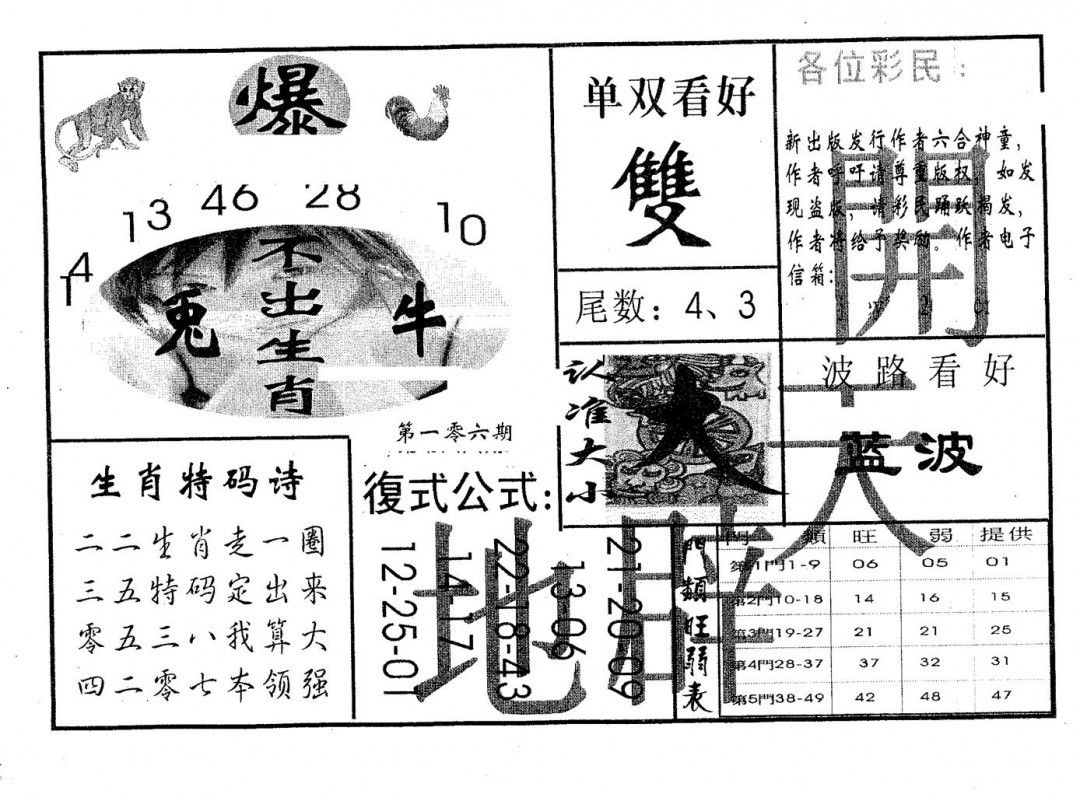 爆
14 13 46 28 10
兔 不出生肖 牛
第一零六期
单双看好
雙
尾数：4、3
各位彩民：
新出版发行作者六合神童，
作者呼吁请尊重版权，如发
现盗版，请彩民踊跃揭发，
作者将给予奖励。作者电子
信箱：
開
天
地
认准大小
大
波路看好
蓝波
生肖特码诗
二二生肖走一圈
三五特码定出来
零五三八我算大
四二零七本领强
復式公式：
12-25-01
14-17
22-18-43
13-06
21-20-09
門類旺弱表
門類 旺 弱 提供
第1門1-9 06 05 01
第2門10-18 14 16 15
第3門19-27 21 21 25
第4門28-37 37 32 31
第5門38-49 42 48 47